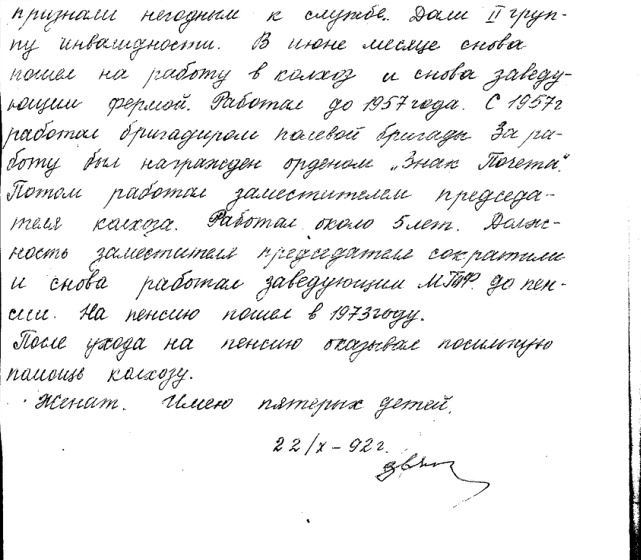 признали негодным к службе. Дали II груп-
пу инвалидности. В июне месяце снова
пошел на работу в колхоз и снова заведу-
ющим фермой. Работал до 1957 года. С 1957г
работал бригадиром полевой бригады За ра-
боту был награжден орденом „Знак Почета".
Потом работал заместителем председа-
теля колхоза. Работал около 5 лет. Долж-
ность заместителя председателя сократили
и снова работал заведующим МТФ. до пен-
сии. На пенсию пошел в 1973 году.
После ухода на пенсию оказывал посильную
помощь колхозу.
Женат. Имею пятерых детей.
22/X – 92 г.